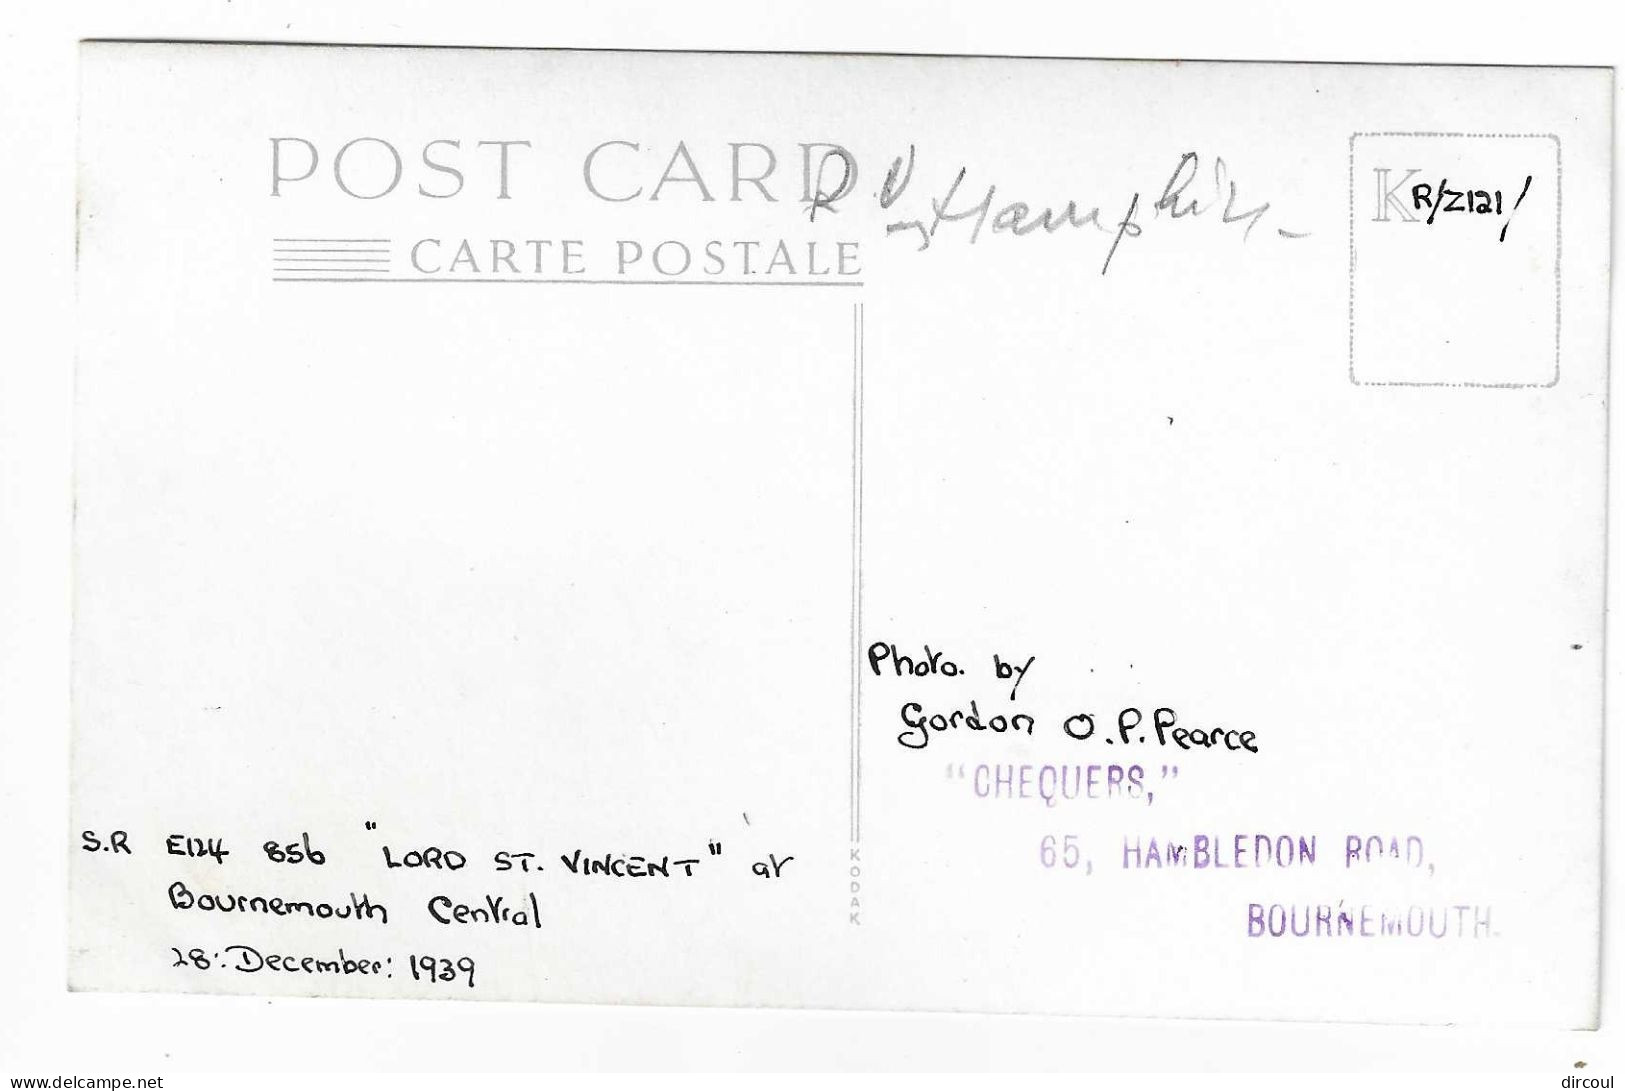 POST CARD
CARTE POSTALE
K R/Z121/
Photo. by
Gordon O.P. Pearce
"CHEQUERS,"
65, HAMBLEDON ROAD,
BOURNEMOUTH.
S.R E124 856 "LORD ST. VINCENT" at
Bournemouth Central
28: December: 1939
KODAK
www.delcampe.net
dircoul